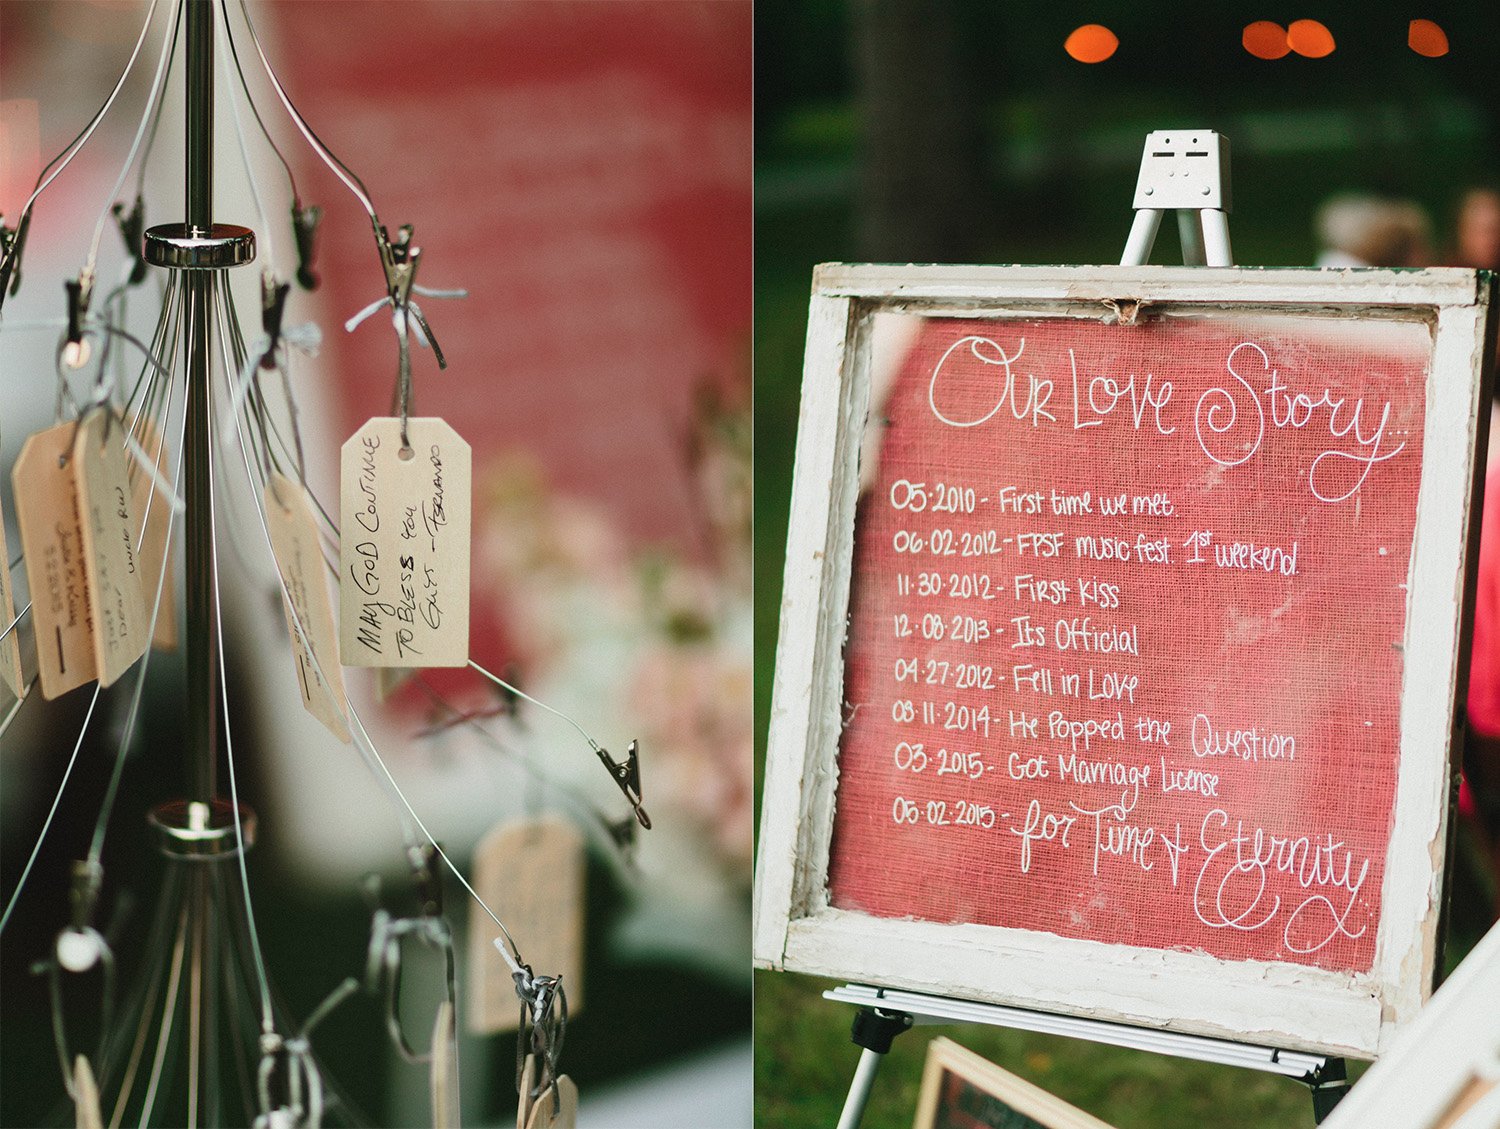 MAY GOD CONTINUE
TO BLESS YOU
GUYS - FERNANDO
OUR LOVE Story...
05·2010 - First time we met.
06·02·2012 - FPSF music fest. 1st weekend.
11·30·2012 - First Kiss
12·08·2013 - Its Official
04·27·2012 - Fell in Love
08·11·2014 - He Popped the Question
03·2015 - Got Marriage License
05·02·2015 - for Time & Eternity...